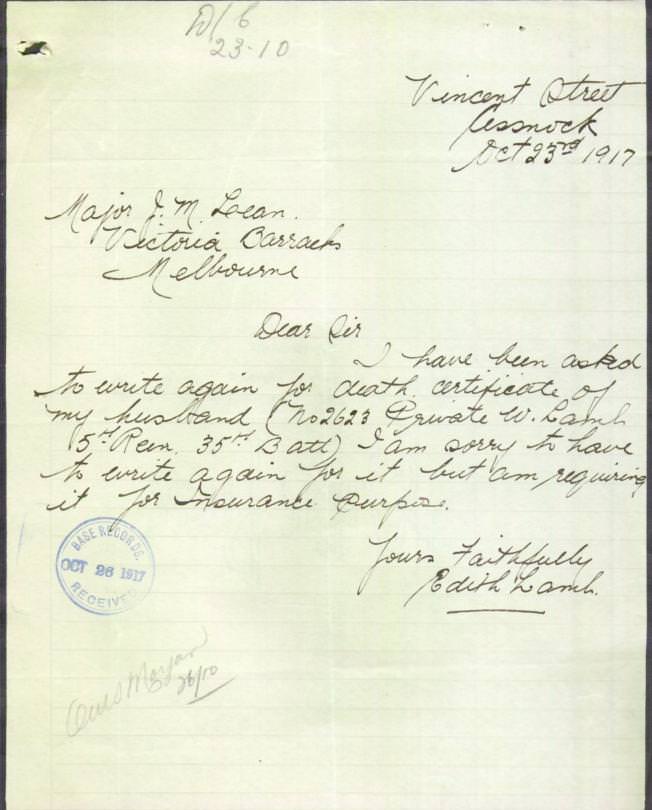 D/6
23-10
Vincent Street
Cessnock
Oct 23rd 1917
Major J. M. Lean.
Victoria Barracks
Melbourne
Dear Sir
I have been asked
to write again for death certificate of
my husband (No 2623 Private W. Lamb
5th Rein. 35th Batt) I am sorry to have
to write again for it but am requiring
it for Insurance Purpose.
Yours Faithfully
Edith Lamb.
BASE RECORDS.
OCT 26 1917
RECEIVED
Morgan
26/10